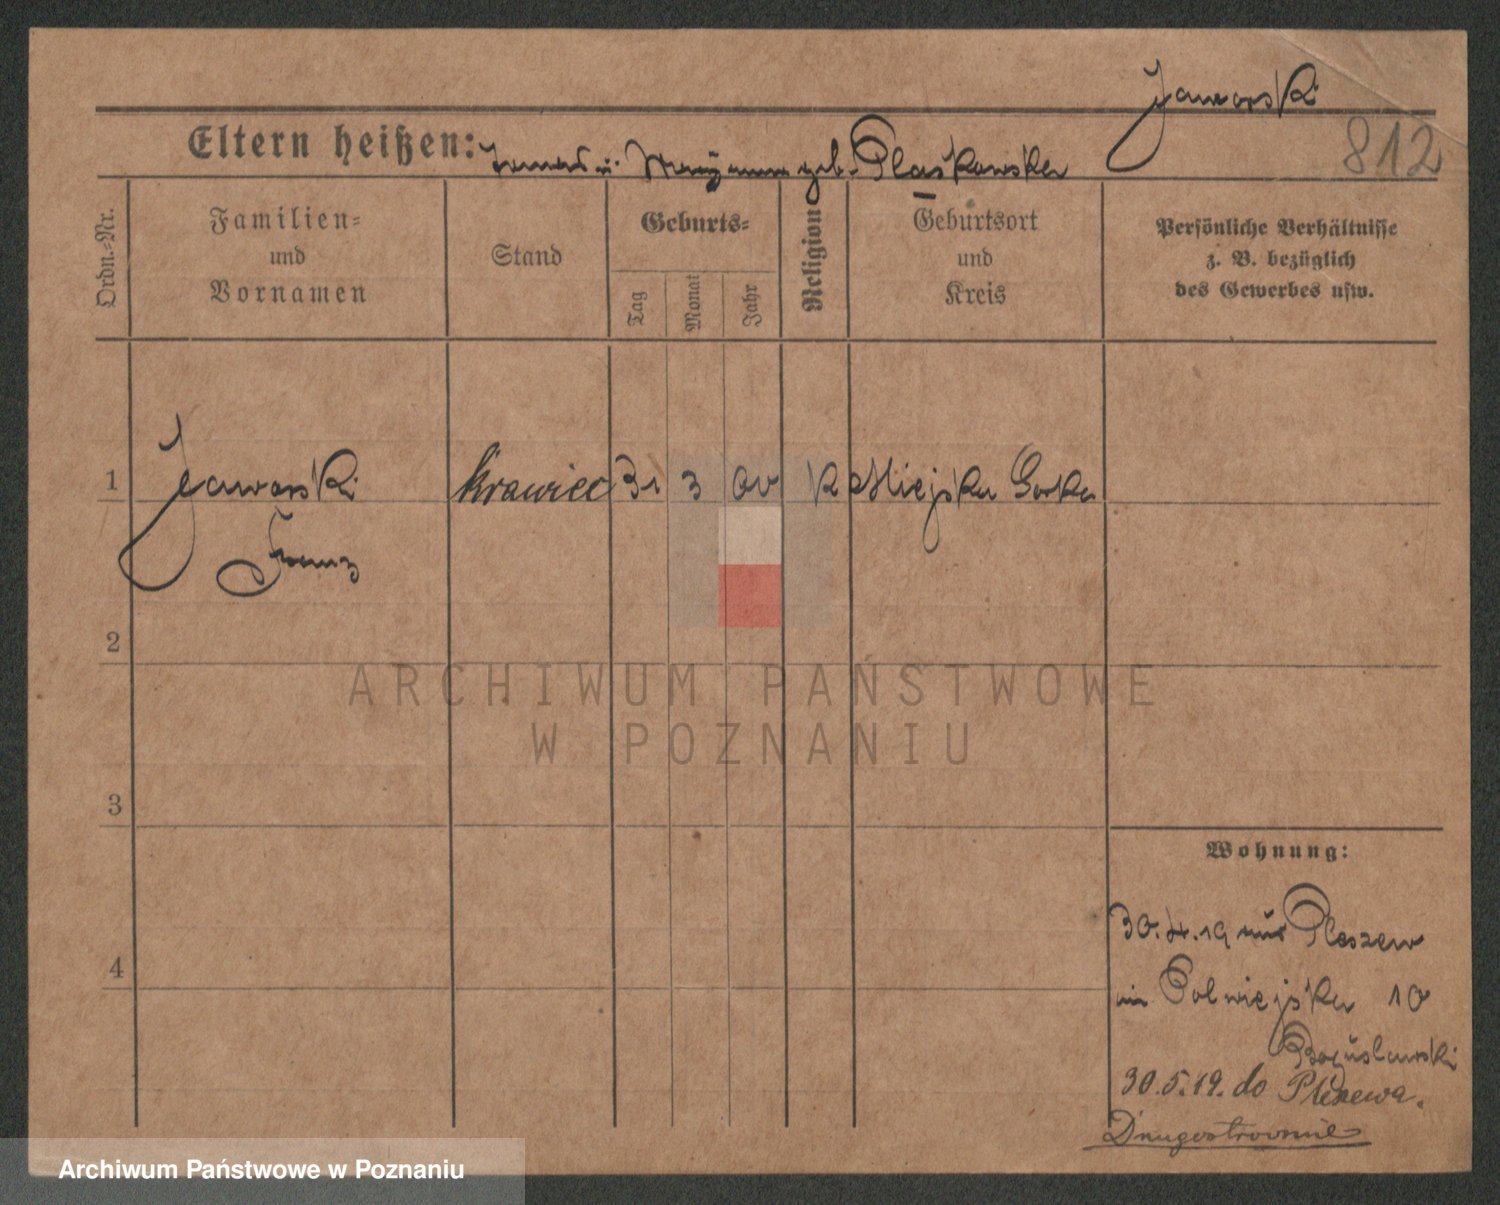 Jaworski
812
Eltern heißen: u. geb. Plaskowska
Ordn.-Nr.
Familien-
und
Vornamen
Stand
Geburts-
Tag
Monat
Jahr
Religion
Geburtsort
und
Kreis
Persönliche Verhältnisse
z. B. bezüglich
des Gewerbes usw.
1
Jaworski
Franz
krawiec
31
3
00
K
Miejska Gorka
2
3
4
Wohnung:
30.4.19 aus Pleszew
in Polwiejska 10
Boguslawski
30.5.19. do Pleszewa.
Drugostronnie
ARCHIWUM PAŃSTWOWE
W POZNANIU
Archiwum Państwowe w Poznaniu